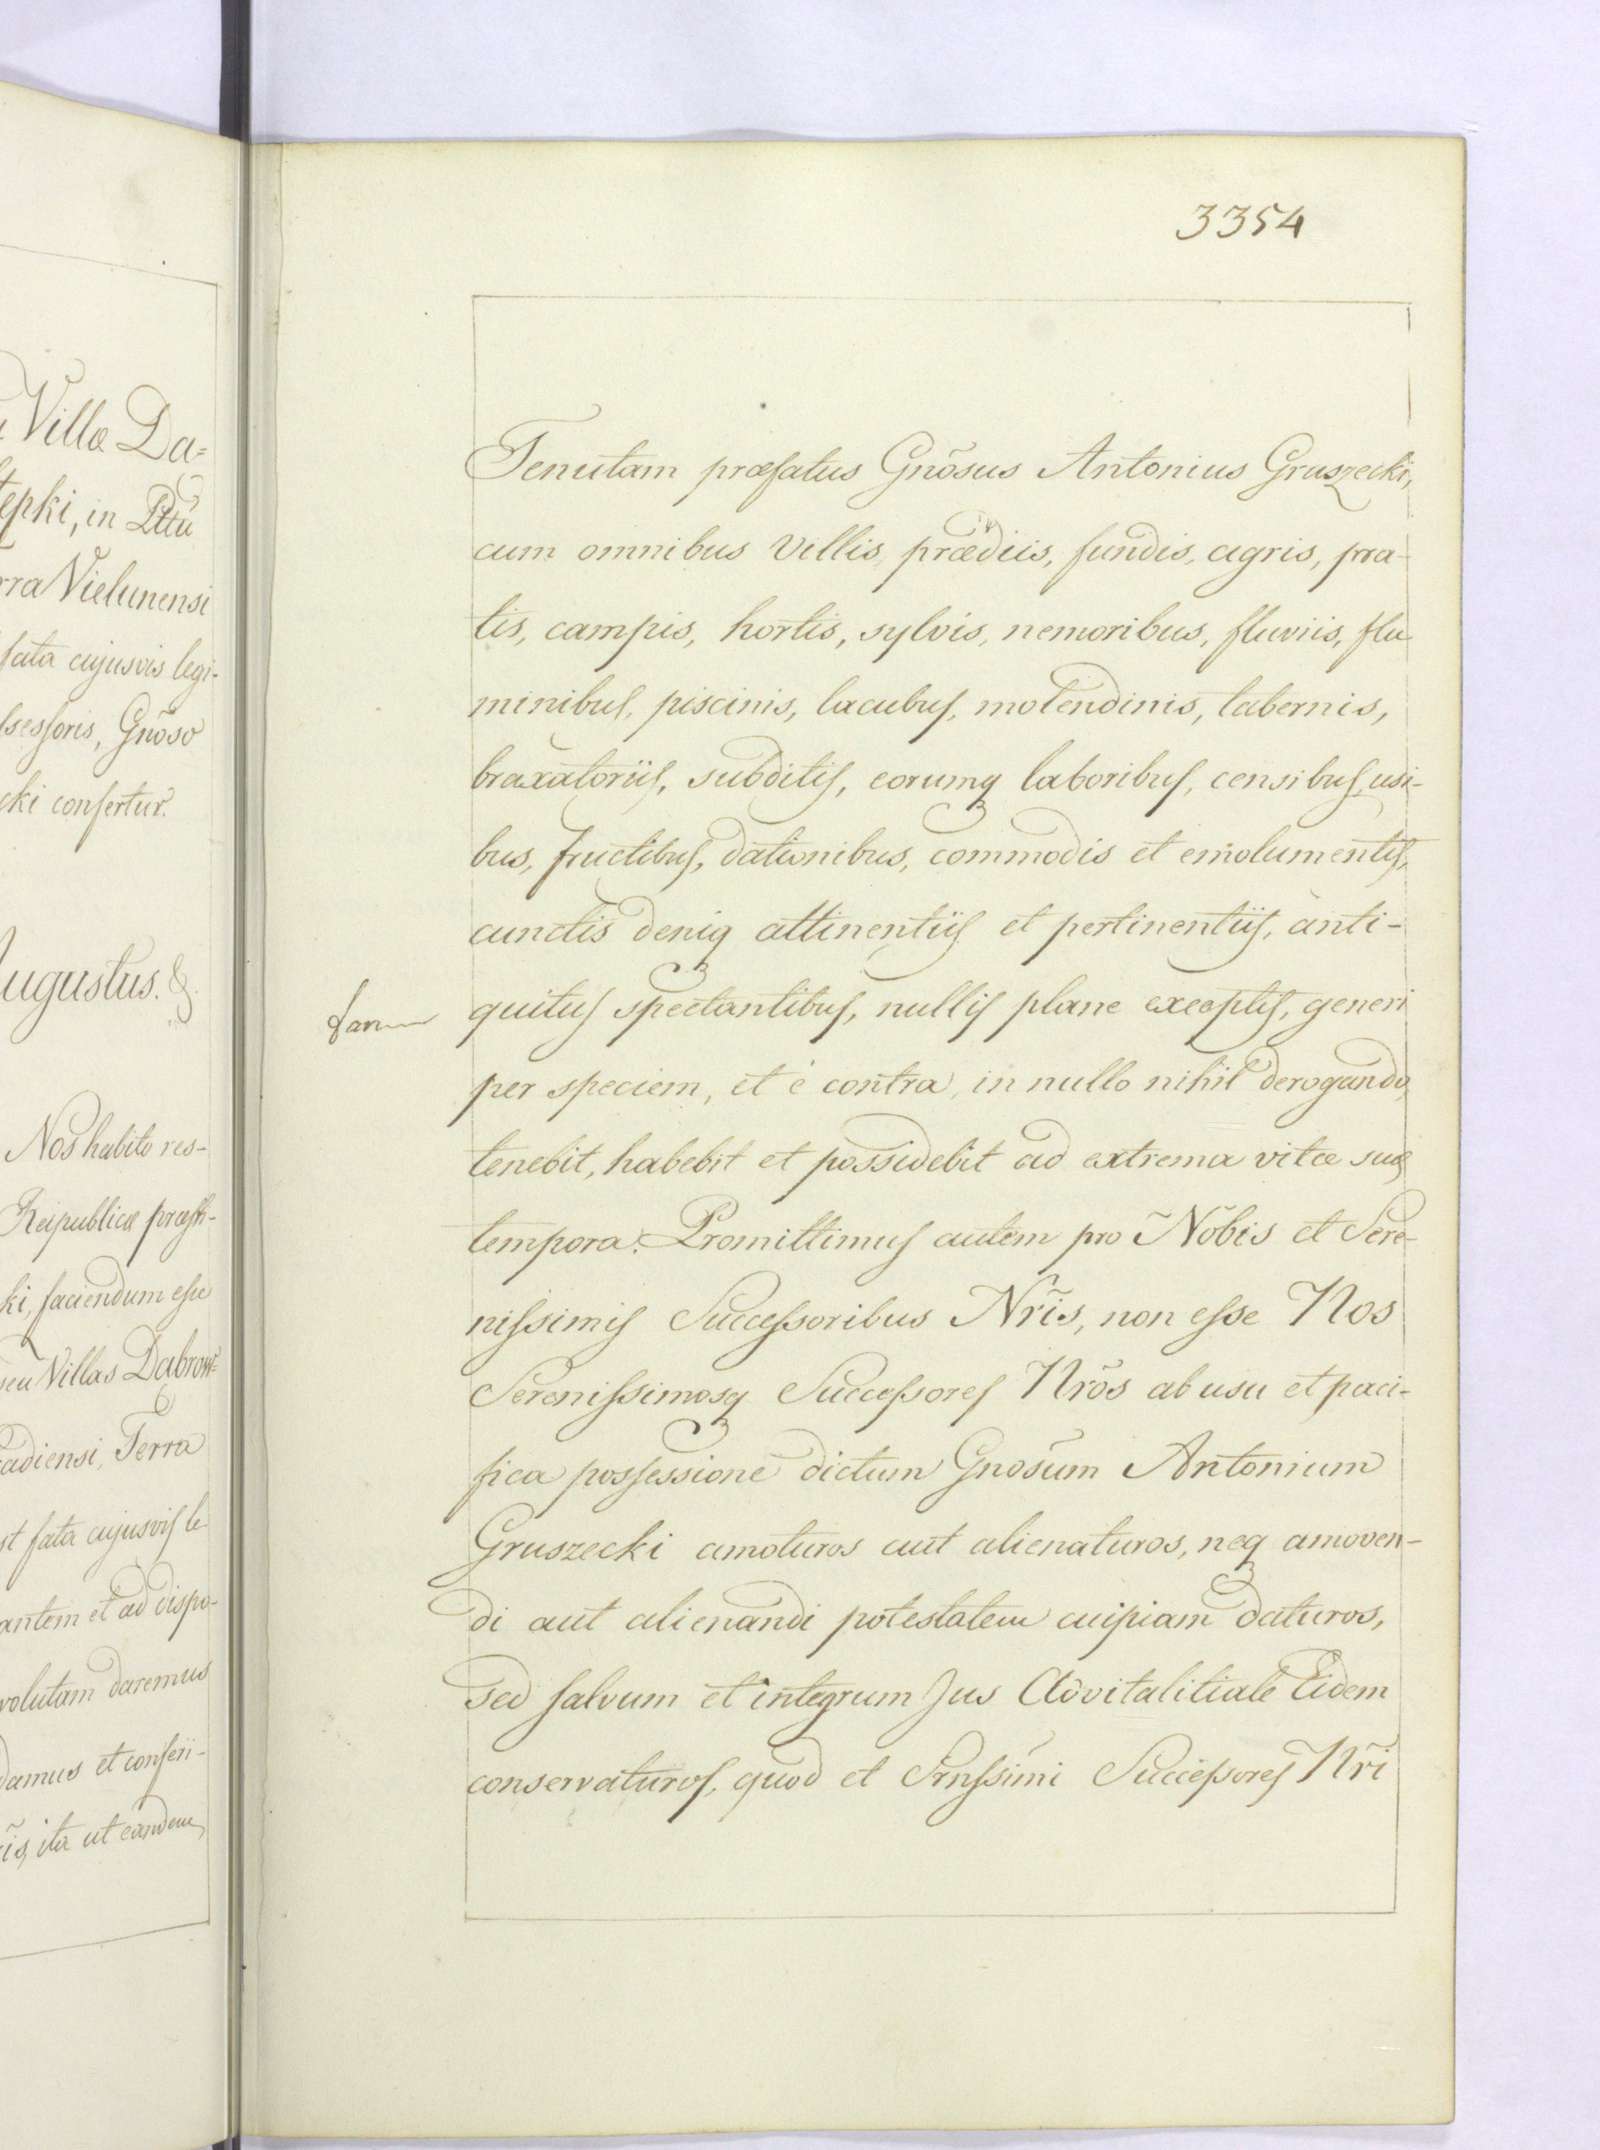 Villæ Da=
tepki, in Pttũ
rra Vielunensi
fata cujusvis legi-
ssessoris, Gñoso
cki confertur.
Augustus. &.
Nos habito res-
Reipublicæ præsti-
ki, faciendum esse
seu Villas Dabrow-
radiensi, Terra
st fata cujusvis le
antem et ad dispo-
volutam daremus
damus et conferi-
ris, ita ut eandem
3354
Tenutam præfatus Gnõsus Antonius Gruszecki,
cum omnibus Villis, prædiis, fundis, agris, pra-
tis, campis, hortis, sylvis, nemoribus, fluviis, flu
minibus, piscinis, lacubus, molendinis, tabernis,
braxatoriis, subditis, eorumq laboribus, censibus, usi-
bus, fructibus, dationibus, commodis et emolumentis,
cunctis deniq attinentiis et pertinentiis, anti-
quitus spectantibus, nullis plane exceptis, generi
per speciem, et è contra, in nullo nihil derogando,
tenebit, habebit et possidebit ad extrema vitæ suæ
tempora. Promittimus autem pro Nõbis et Sere-
nissimis Successoribus Nr̃is, non esse Nos
Serenissimosq Successores Nrõs ab usu et paci-
fica possessione dictum Gnosũm Antonium
Gruszecki amoturos aut alienaturos, neq amoven-
di aut alienandi potestatem cuipiam daturos,
sed salvum et integrum Jus Advitalitiale Eidem
conservaturos, quod et Srnssimi Successores Nr̃i